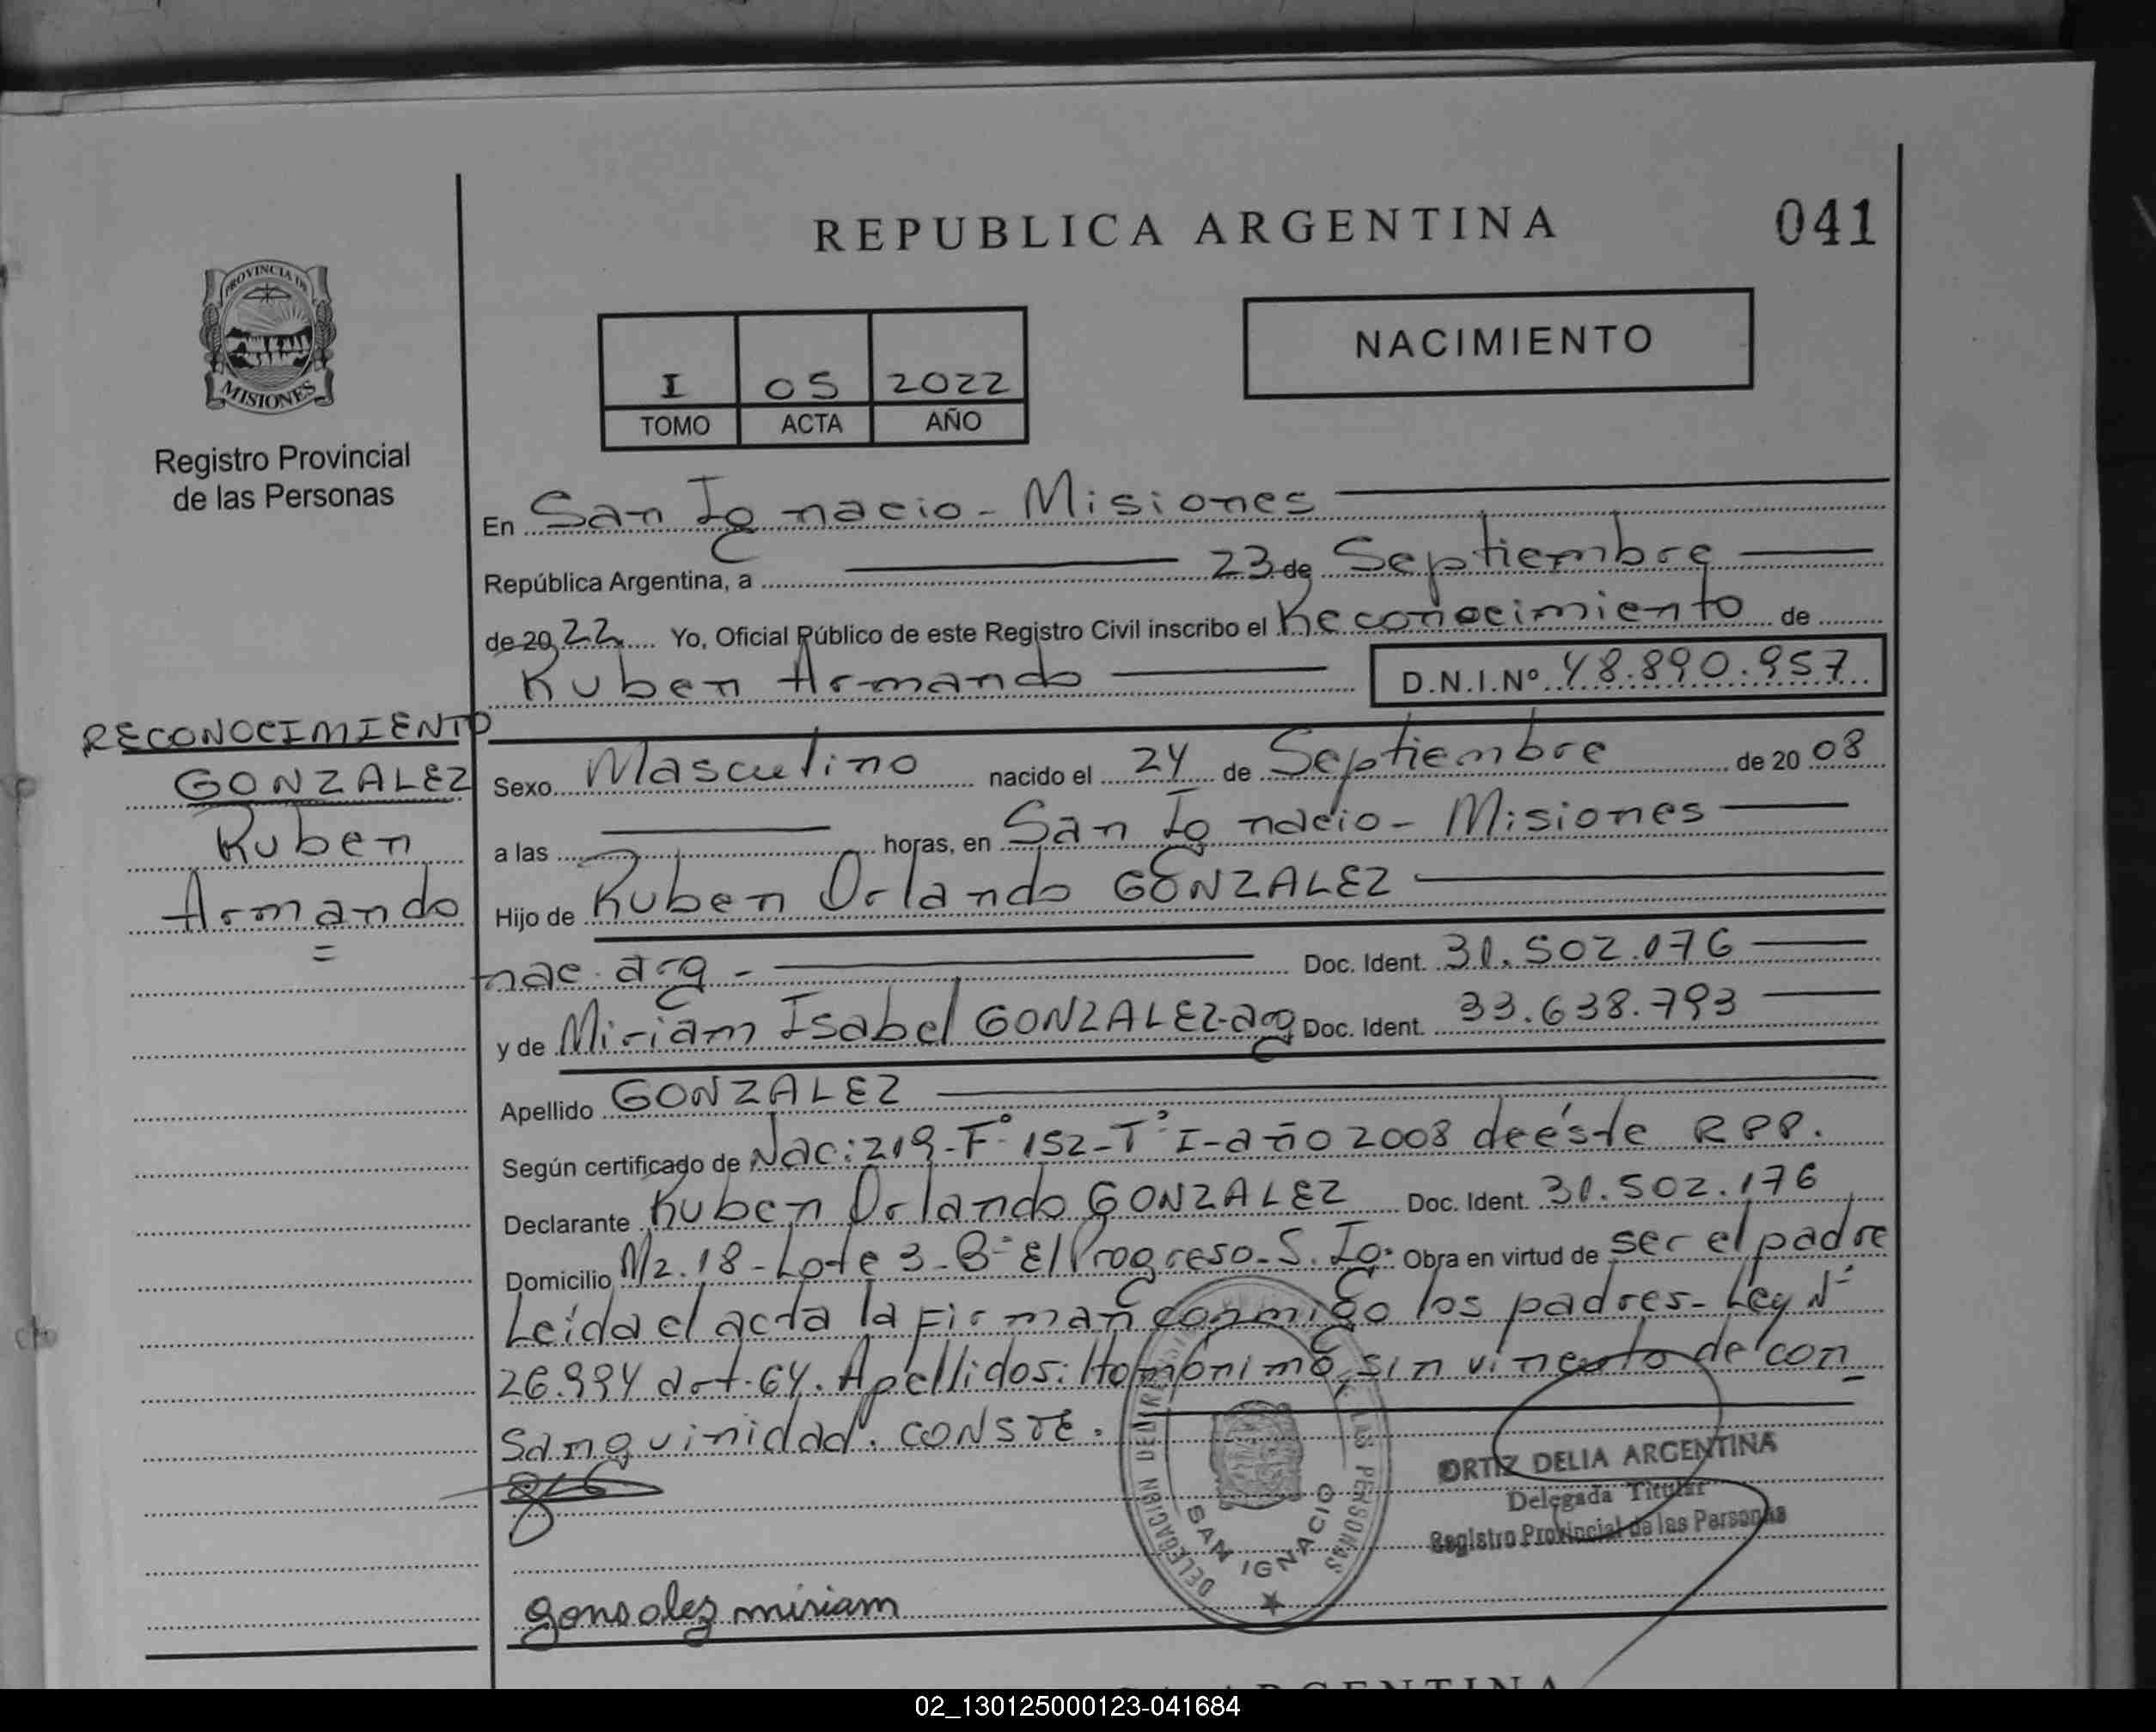 REPUBLICA ARGENTINA
041
PROVINCIA DE
MISIONES
Registro Provincial
de las Personas
NACIMIENTO
I 05 2022
TOMO ACTA AÑO
En San Ignacio - Misiones
República Argentina, a 23 de Septiembre
de 2022 Yo, Oficial Público de este Registro Civil inscribo el Reconocimiento de
Ruben Armando D.N.I.Nº 48.890.957
RECONOCIMIENTO
GONZALEZ
Ruben
Armando
=
Sexo Masculino nacido el 24 de Septiembre de 20 08
a las horas, en San Ignacio - Misiones
Hijo de Ruben Orlando GONZALEZ
nac. arg - Doc. Ident. 31.502.076
y de Miriam Isabel GONZALEZ-arg Doc. Ident. 33.638.793
Apellido GONZALEZ
Según certificado de Nac: 219-Fº 152-Tº I-año 2008 de éste RPP.
Declarante Ruben Orlando GONZALEZ Doc. Ident. 31.502.176
Domicilio Mz. 18 - Lote 3 - Bº El Progreso - S. Ig. Obra en virtud de ser el padre
Leída el acta la Firman conmigo los padres - Ley Nº
26.994 art. 64. Apellidos: Homónimo, sin vinculo de con
sanguinidad. CONSTE.
ORTIZ DELIA ARGENTINA
Delegada Titular
Registro Provincial de las Personas
DELEGACIÓN DE LAS PERSONAS
SAN IGNACIO
gonsalez miriam
ARGENTINA
02_130125000123-041684